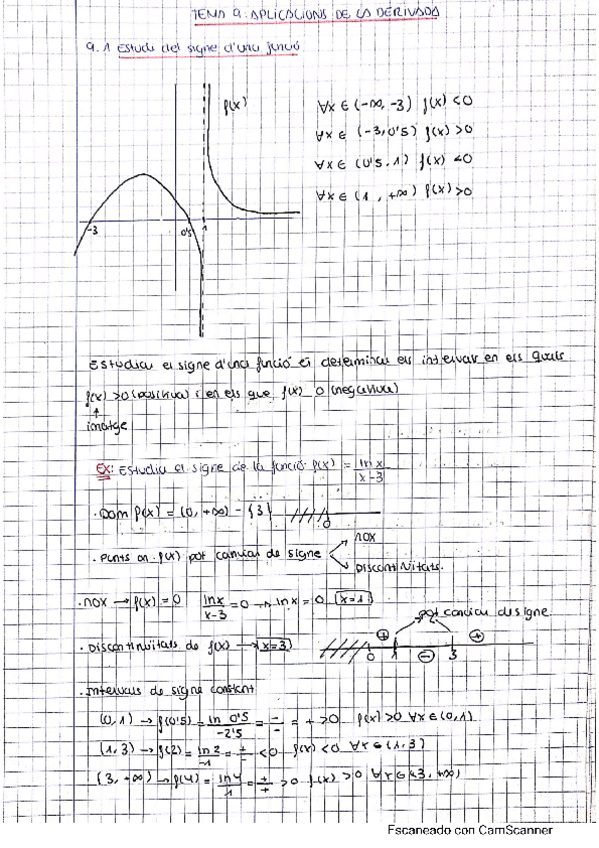 TEMA 9: APLICACIONS DE LA DERIVADA
9.1 Estudi del signe d'una funció
f(x)
∀x ∈ (-∞, -3) f(x) < 0
∀x ∈ (-3, 0'5) f(x) > 0
∀x ∈ (0'5, 1) f(x) < 0
∀x ∈ (1, +∞) f(x) > 0
-3 0'5 1
Estudiar el signe d'una funció és determinar els intervals en els quals
f(x) > 0 (positiva) i en els que f(x) 0 (negativa)
imatge
EX: Estudia el signe de la funció f(x) = ln x / x-3
· Dom f(x) = (0, +∞) - {3}
0
· Punts on f(x) pot canviar de signe
nox
Discontinuïtats.
· nox → f(x) = 0 ln x / x-3 = 0 → ln x = 0 x=1
pot canviar de signe
· Discontinuïtats de f(x) → x=3
+ - +
0 1 3
· Intervals de signe constant
(0, 1) → f(0'5) = ln 0'5 / -2'5 = - / - = + > 0 f(x) > 0 ∀x ∈ (0, 1)
(1, 3) → f(2) = ln 2 / -1 = + / - < 0 f(x) < 0 ∀x ∈ (1, 3)
(3, +∞) → f(4) = ln 4 / 1 = + / + > 0 f(x) > 0 ∀x ∈ (3, +∞)
Escaneado con CamScanner